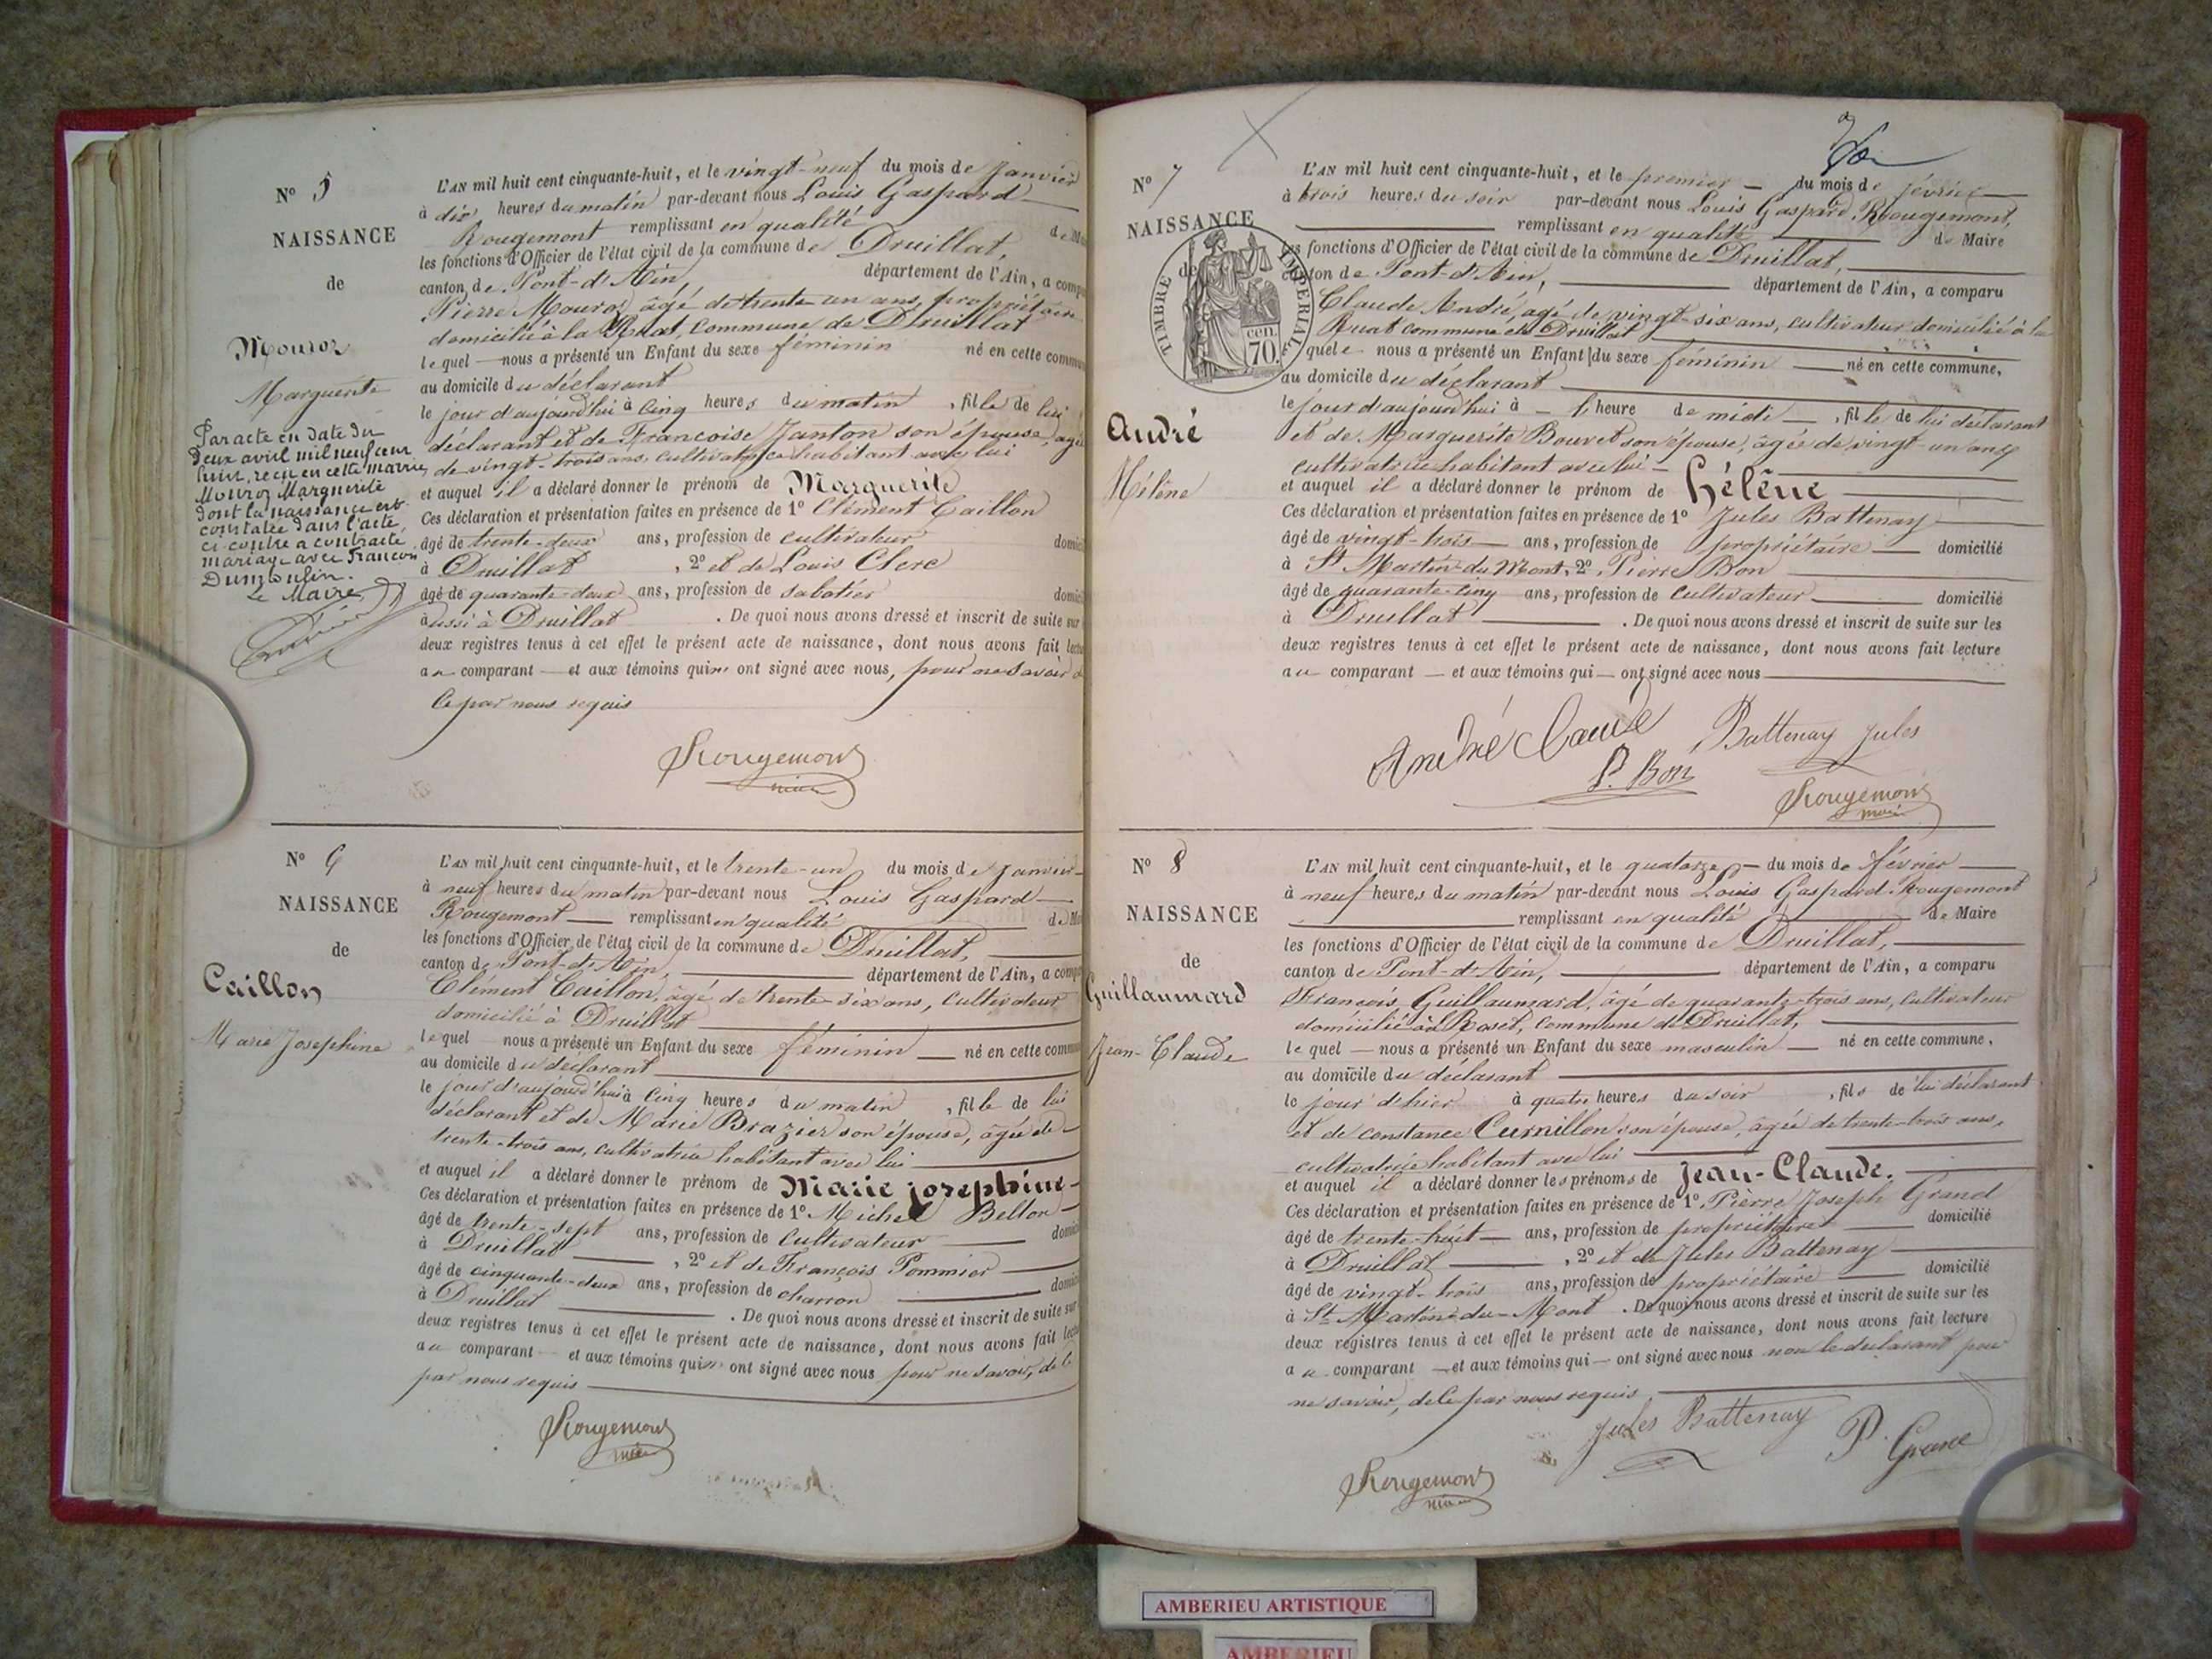 N° 5
NAISSANCE
de
Mouroz
Marguerite
Par acte en date du
deux avril mil neuf cent
huit, reçu en cette mairie
Mouroz Marguerite
dont la naissance est
constatée dans l'acte
ci-contre a contracté
mariage avec François
Dumoulin.
Le Maire
L'AN mil huit cent cinquante-huit, et le vingt-neuf du mois de Janvier
à dix heures du matin par-devant nous Louis Gaspard
Rougemont remplissant en qualité de Ma
les fonctions d'Officier de l'état civil de la commune de Druillat,
canton de Pont-d'Ain, département de l'Ain, a comp
Pierre Mouroz, âgé de trente un ans, propriétaire
domicilié à la Ruat, commune de Druillat
lequel nous a présenté un Enfant du sexe féminin né en cette commun
au domicile du déclarant
le jour d'aujourd'hui à cinq heures du matin , fille de lui
déclarant et de Francoise Janton son épouse, agée
de vingt-trois ans, cultivatrice habitant avec lui
et auquel il a déclaré donner le prénom de Marguerite
Ces déclaration et présentation faites en présence de 1° Clément Caillon
âgé de trente-deux ans, profession de cultivateur domici
à Druillat , 2° et de Louis Clerc
âgé de quarante-deux ans, profession de sabotier domici
aussi à Druillat . De quoi nous avons dressé et inscrit de suite sur
deux registres tenus à cet effet le présent acte de naissance, dont nous avons fait lectu
au comparant et aux témoins qui ne ont signé avec nous, pour ne savoir de
ce par nous requis
Rougemont
maire
N° 6
NAISSANCE
de
Caillon
Marie Josephine
L'AN mil huit cent cinquante-huit, et le trente-un du mois de Janvier
à neuf heures du matin par-devant nous Louis Gaspard
Rougemont remplissant en qualité de Ma
les fonctions d'Officier de l'état civil de la commune de Druillat,
canton de Pont-d'Ain, département de l'Ain, a comp
Clément Caillon, âgé de trente-six ans, cultivateur
domicilié à Druillat
lequel nous a présenté un Enfant du sexe féminin né en cette commun
au domicile du déclarant
le jour d'aujourd'hui à cinq heures du matin , fille de lui
déclarant et de Marie Brazier son épouse, âgée de
trente-trois ans, cultivatrice habitant avec lui
et auquel il a déclaré donner le prénom de Marie josephine
Ces déclaration et présentation faites en présence de 1° Michel Bellon
âgé de trente-sept ans, profession de cultivateur domici
à Druillat , 2° et de François Pommier
âgé de cinquante-deux ans, profession de charron domici
à Druillat . De quoi nous avons dressé et inscrit de suite sur
deux registres tenus à cet effet le présent acte de naissance, dont nous avons fait lectu
au comparant et aux témoins qui ne ont signé avec nous pour ne savoir, de ce
par nous requis
Rougemont
maire
N° 7
NAISSANCE
de
TIMBRE IMPERIAL
70 cen.
André
Hélène
L'AN mil huit cent cinquante-huit, et le premier du mois de février
à trois heures du soir par-devant nous Louis Gaspard Rougemont,
remplissant en qualité de Maire
les fonctions d'Officier de l'état civil de la commune de Druillat,
canton de Pont-d'Ain, département de l'Ain, a comparu
Claude André, agé de vingt-six ans, cultivateur domicilié à la
Ruat commune de Druillat
quel nous a présenté un Enfant du sexe féminin né en cette commune,
au domicile du déclarant
le jour d'aujourd'hui à l'heure de midi , fille de lui déclarant
et de Marguerite Bouvet son épouse, âgée de vingt-un ans
cultivatrice habitant avec lui
et auquel il a déclaré donner le prénom de Hélène
Ces déclaration et présentation faites en présence de 1° Jules Battenay
âgé de vingt-trois ans, profession de propriétaire domicilié
à St Martin-du-Mont, 2° Pierre Bon
âgé de quarante-cinq ans, profession de cultivateur domicilié
à Druillat . De quoi nous avons dressé et inscrit de suite sur les
deux registres tenus à cet effet le présent acte de naissance, dont nous avons fait lecture
au comparant et aux témoins qui ont signé avec nous
André Claude Battenay Jules
P. Bon
Rougemont
maire
N° 8
NAISSANCE
de
Guillaumard
Jean-Claude
L'AN mil huit cent cinquante-huit, et le quatorze du mois de février
à neuf heures du matin par-devant nous Louis Gaspard Rougemont
remplissant en qualité de Maire
les fonctions d'Officier de l'état civil de la commune de Druillat,
canton de Pont-d'Ain, département de l'Ain, a comparu
François Guillaumard, âgé de quarante-trois ans, cultivateur
domicilié à commune de Druillat,
lequel nous a présenté un Enfant du sexe masculin né en cette commune,
au domicile du déclarant
le jour d'hier à quatre heures du soir , fils de lui déclarant
et de constance Curnillon son épouse, âgée de trente-trois ans,
cultivatrice habitant avec lui
et auquel il a déclaré donner les prénoms de Jean-Claude.
Ces déclaration et présentation faites en présence de 1° Pierre Joseph Grand
âgé de trente-huit ans, profession de propriétaire domicilié
à Druillat , 2° et de Jules Battenay
âgé de vingt-trois ans, profession de propriétaire domicilié
à St Martin-du-Mont . De quoi nous avons dressé et inscrit de suite sur les
deux registres tenus à cet effet le présent acte de naissance, dont nous avons fait lecture
au comparant et aux témoins qui ont signé avec nous non le déclarant pour
ne savoir, de ce par nous requis
Jules Battenay P. Grand
Rougemont
maire
AMBERIEU ARTISTIQUE
AMBERIEU